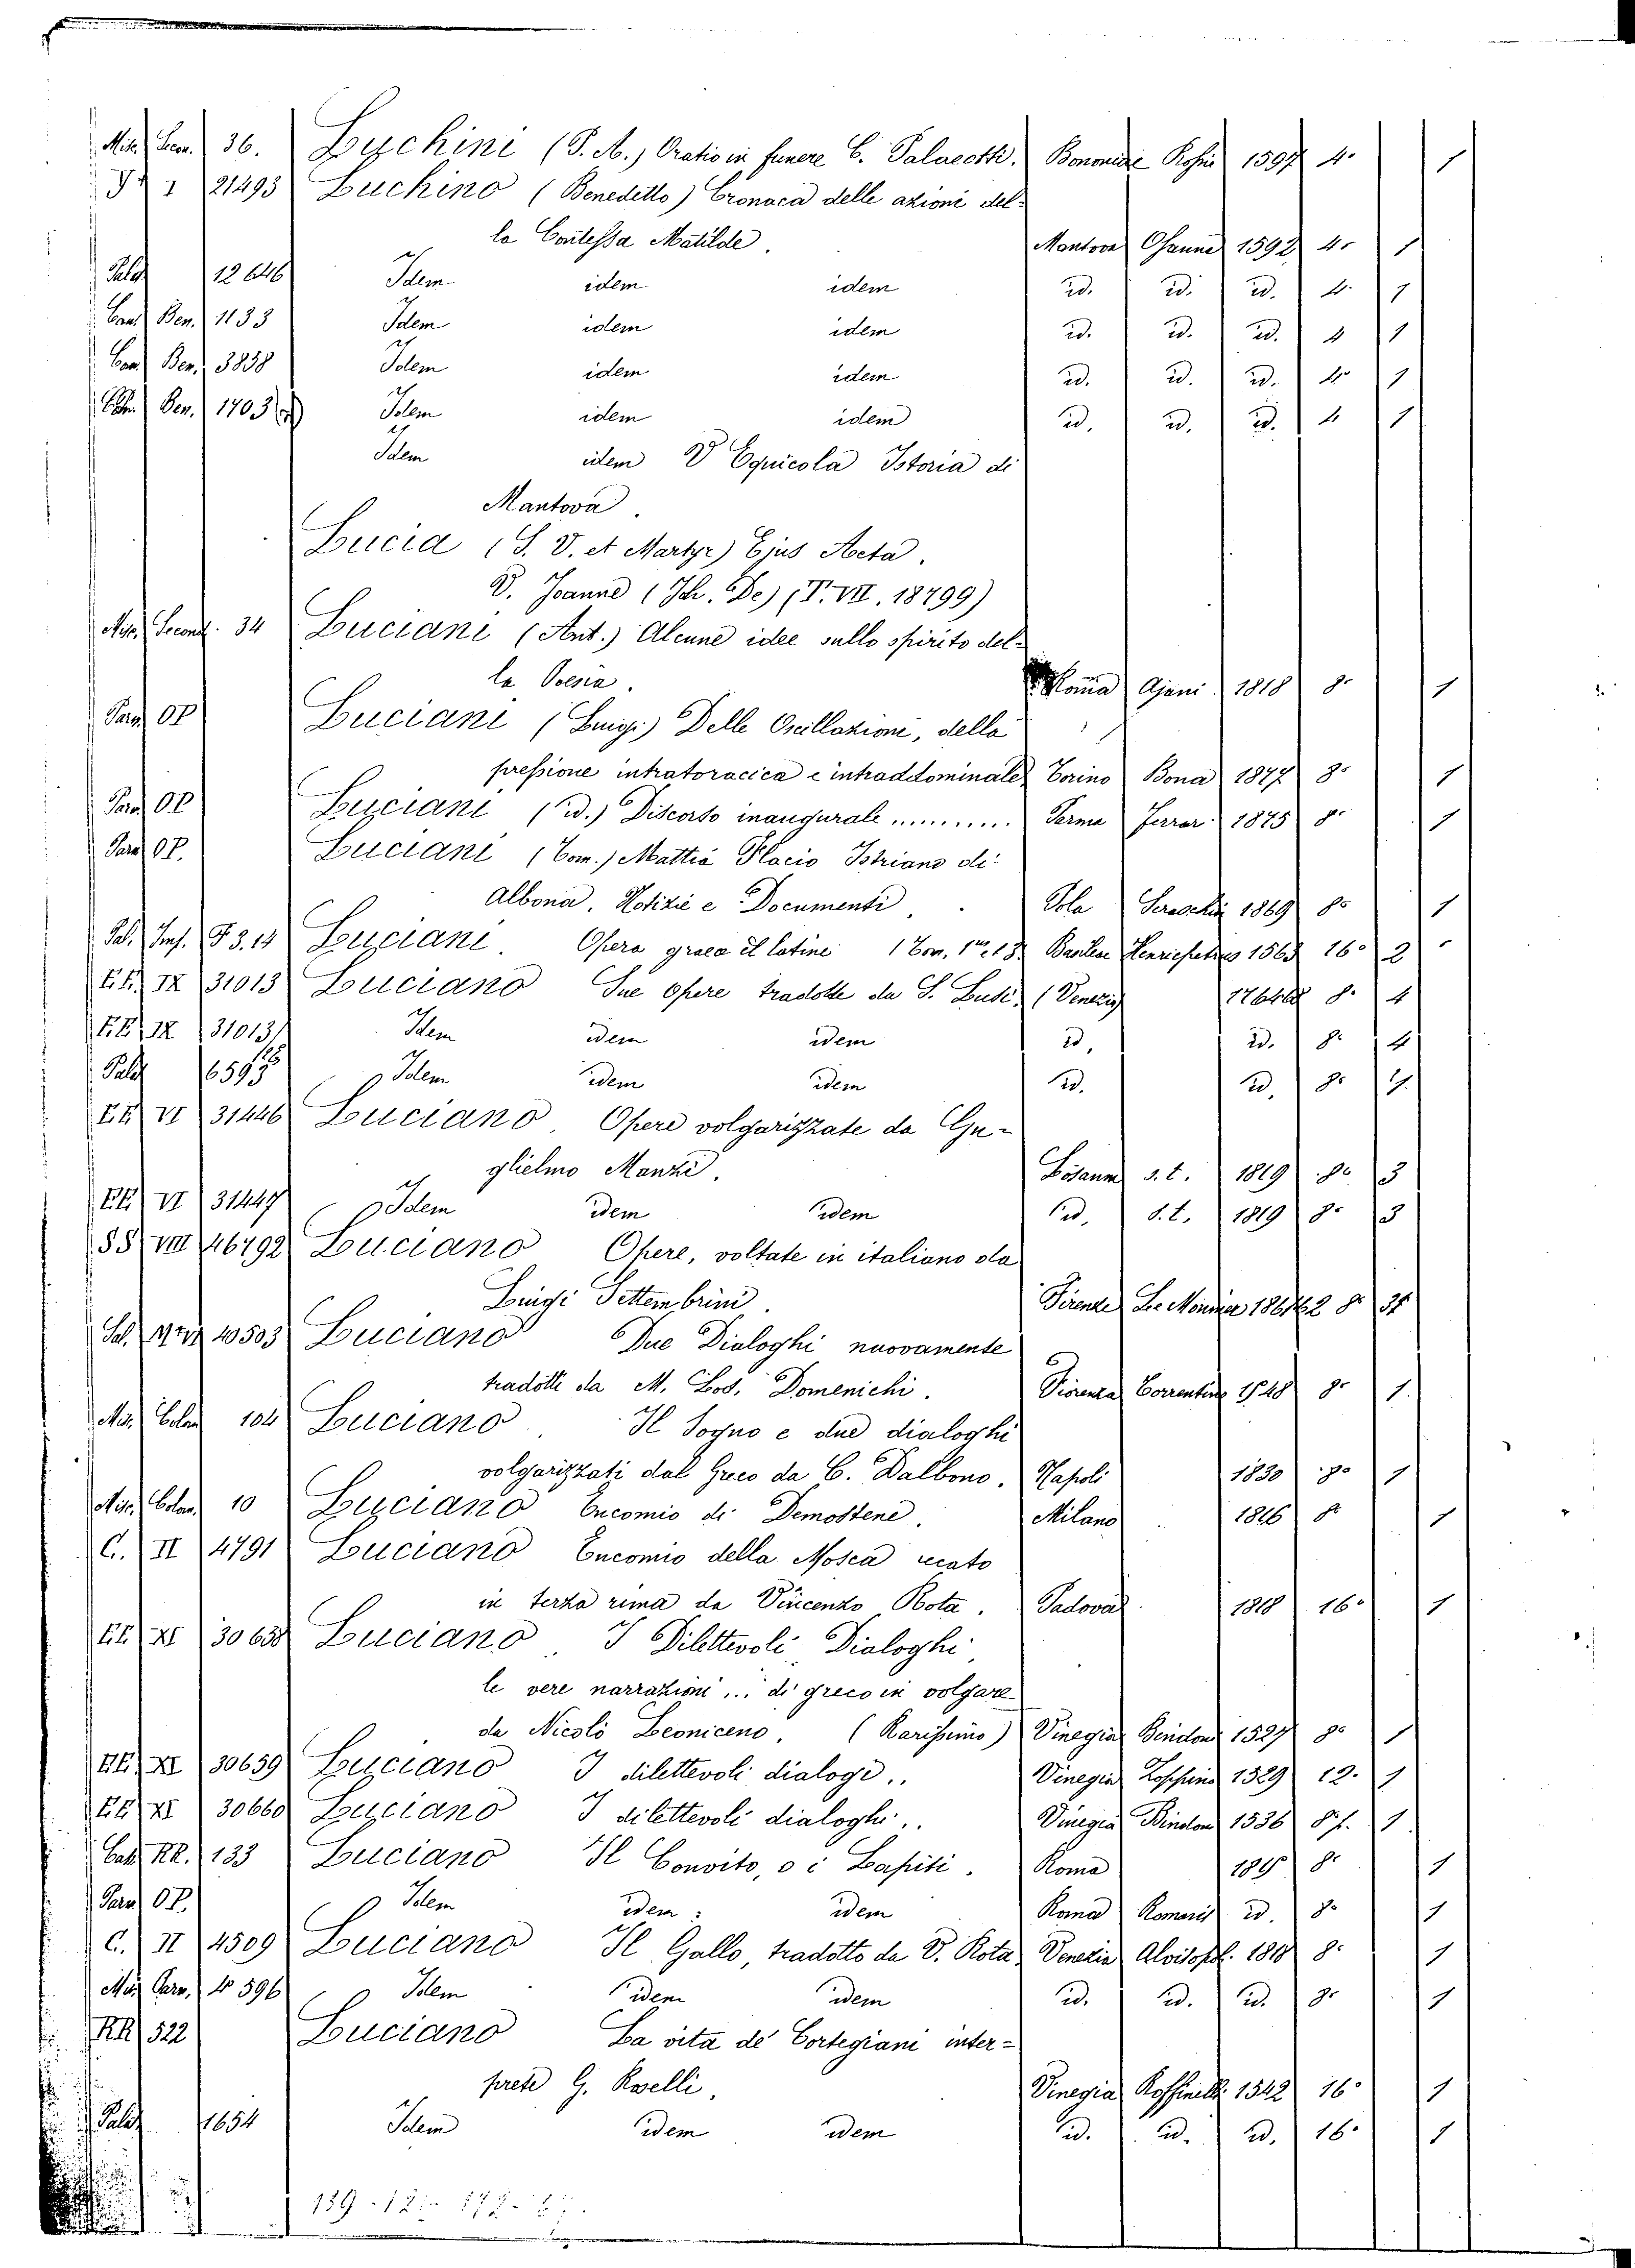 Misc. Secon. 36. Luchini (P. M.) Oratio in funere C. Palaeotti. Bononiae 1597 4° 1
I 21493 Luchino (Benedetto) Cronaca delle azioni del-
la Contessa Matilde. Mantova Osanna 1592 4° 1
Palat 12646 Idem idem idem id. id. id. 4° 1
Ben. 1133 Idem idem idem id. id. id. 4 1
Ben. 3858 Idem idem idem id. id. id. 4° 1
Ben. 1703 Idem idem idem id. id. id. 4 1
Idem idem V Equicola Istoria di
Mantova
Lucia (S. V. et Martyr) Ejus Acta.
V. Joanne (Jh. De) (T. VII. 18799)
Misc. Second. 34 Luciani (Ant.) Alcune idee sullo spirito del-
la Poesia. Roma Ajani 1818 8° 1
Parm OP Luciani (Luigi) Delle Oscillazioni, della
pressione intratoracica e intraddominale Torino Bona 1877 8° 1
Parm OP Luciani (id.) Discorso inaugurale .......... Parma Ferrar 1875 8° 1
Parm OP. Luciani (Tom.) Mattia Flacio Istriano di
Albona. Notizie e Documenti. Pola Seraschin 1869 8° 1
Luciani. Opera graeca et latine Basileae Henricpetri 1563 16° 2
IX 31013 Luciano Sue opere tradotte da S. Lusi. (Venezia 1764 8° 4
IX 31013 Idem idem idem id. id. 8° 4
Palat Idem idem idem id. id. 8°
VI 31446 Luciano Opere volgarizzate da Gu-
glielmo Manzi. Losanna s. t. 1819 8° 3
VI 31447 Idem idem idem id. s. t. 1819 8° 3
SS VIII 46792 Luciano Opere, voltate in italiano da
Luigi Settembrini. Firenze Le Monnier 8° 3
10503 Luciano Due Dialoghi nuovamente
tradotti da M. Lod. Domenichi. Fiorenza 1548 8° 1.
Misc. Colom 104 Luciano Il Sogno e due dialoghi
volgarizzati dal Greco da C. Dalbono. Napoli 1830 8° 1
Misc. Colom 10 Luciano Encomio di Demostene. Milano 1816 8° 1
C. II 4791 Luciano Encomio della Mosca recato
in terza rima da Vincenzo Rota. Padova 1818 16° 1
XI 30658 Luciano. I Dilettevoli Dialoghi
le vere narrazioni ... di greco in volgare
da Nicolò Leoniceno. (Rarissimo) Vinegia Bindoni 1527 8° 1
XI 30659 Luciano I dilettevoli dialogi.. Vinegia Zoppino 1529 12. 1
XI 30660 Luciano I dilettevoli dialoghi.. Vinegia Bindoni 1536 8° 1
RR. 133 Luciano Il Convito, o i Lapiti. Roma 8° 1
Parm OP. Idem idem idem Roma id. 8° 1
C. II 4509 Luciano Il Gallo, tradotto da V. Rota Venezia Alvisopol. 1818 8° 1
Misc. Parm. 4° 596 Idem idem idem id. id. id. 8° 1
RR 522 Luciano La vita de' Cortegiani inter-
prete G. Roselli. Vinegia Roffinelli 1542 16° 1
Palat 1654 Idem idem idem id. id. id. 16° 1